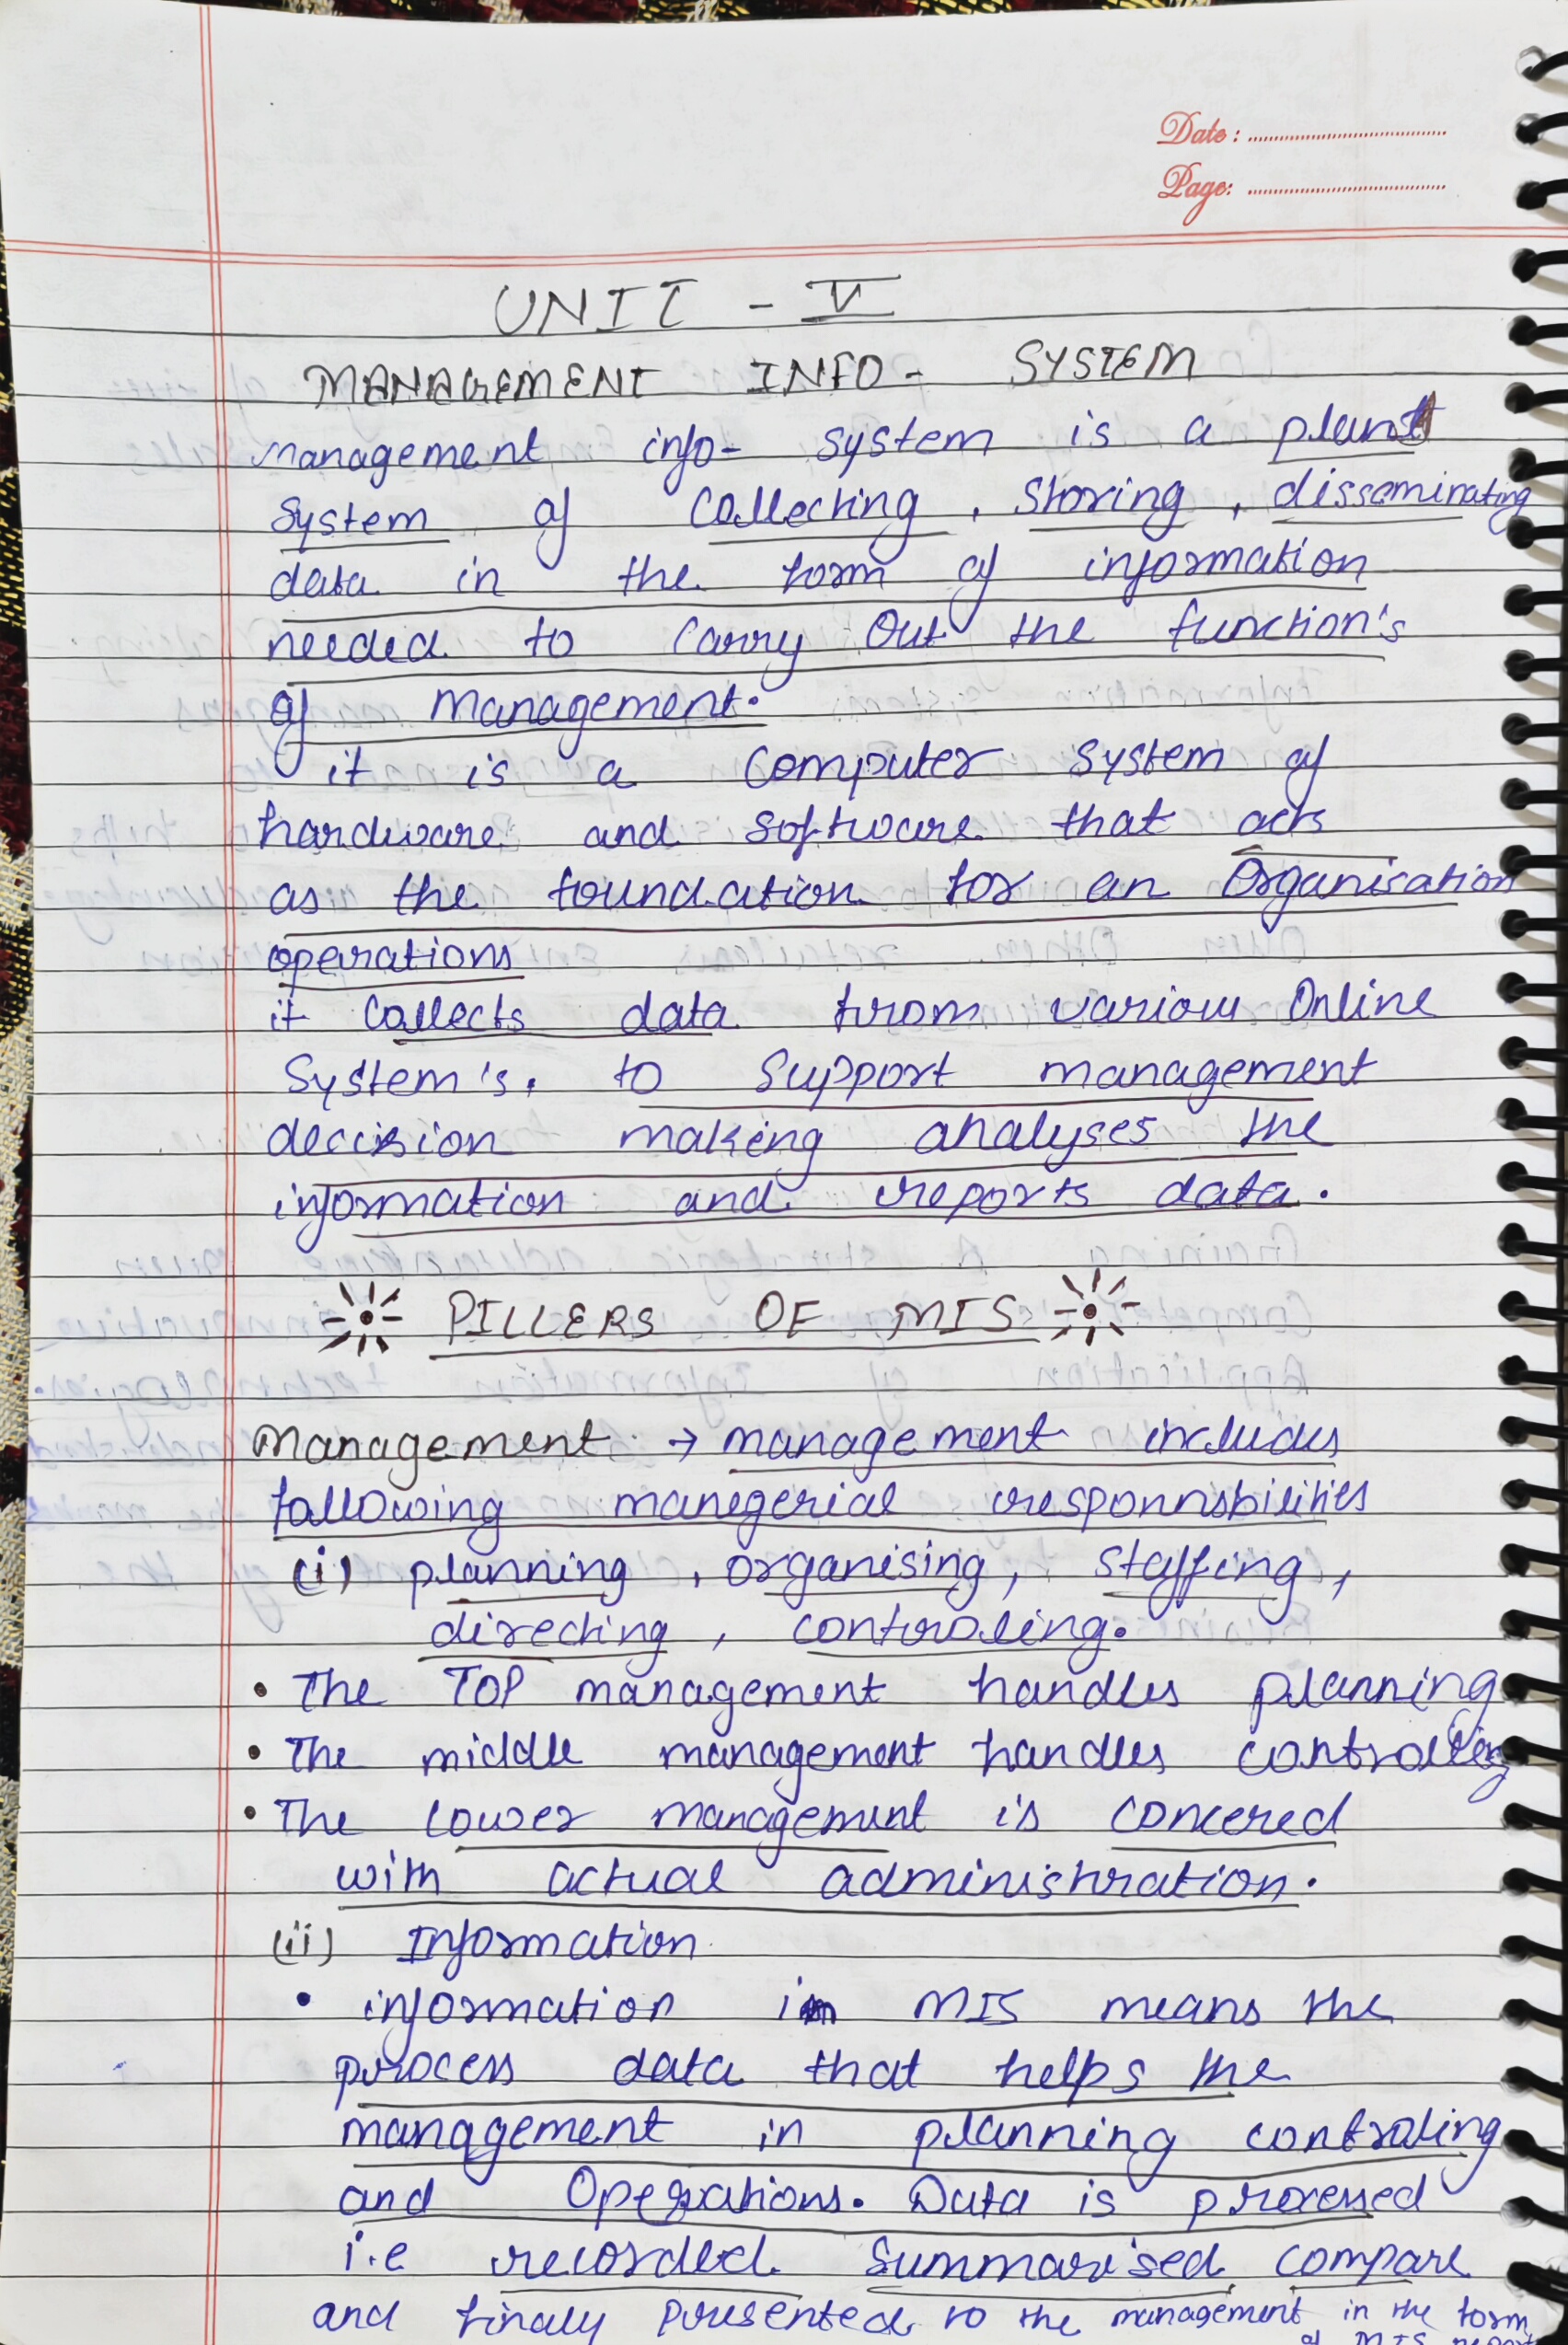 Date :
Page:
UNIT - V
MANAGEMENT INFO- SYSTEM
management info- system is a
system of collecting , storing , disseminating
data in the form of information
needed to carry out the function's
of management.
it is a computer system of
hardware and software that acts
as the foundation for an organisation
operations
it collects data from various online
System's. to support management
decision making analyses the
information and reports data.
PILLERS OF MIS
Management → management includes
following manegerial responnsbilities
(i) planning , organising, staffing,
directing , controling.
• The TOP management handles planning
• The middle management handles controlling
• The lower management is concered
with actual administration.
(ii) Information
• information in MIS means the
process data that helps the
management in planning controling
and Operations. Data is processed
i.e recorded summarised compare
and finaly presented to the management in the form
of MIS